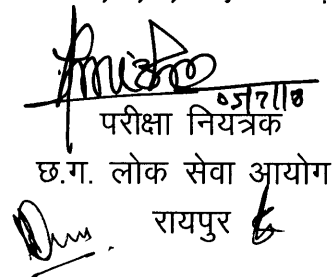 05/7/18
परीक्षा नियत्रक
छ.ग. लोक सेवा आयोग
रायपुर